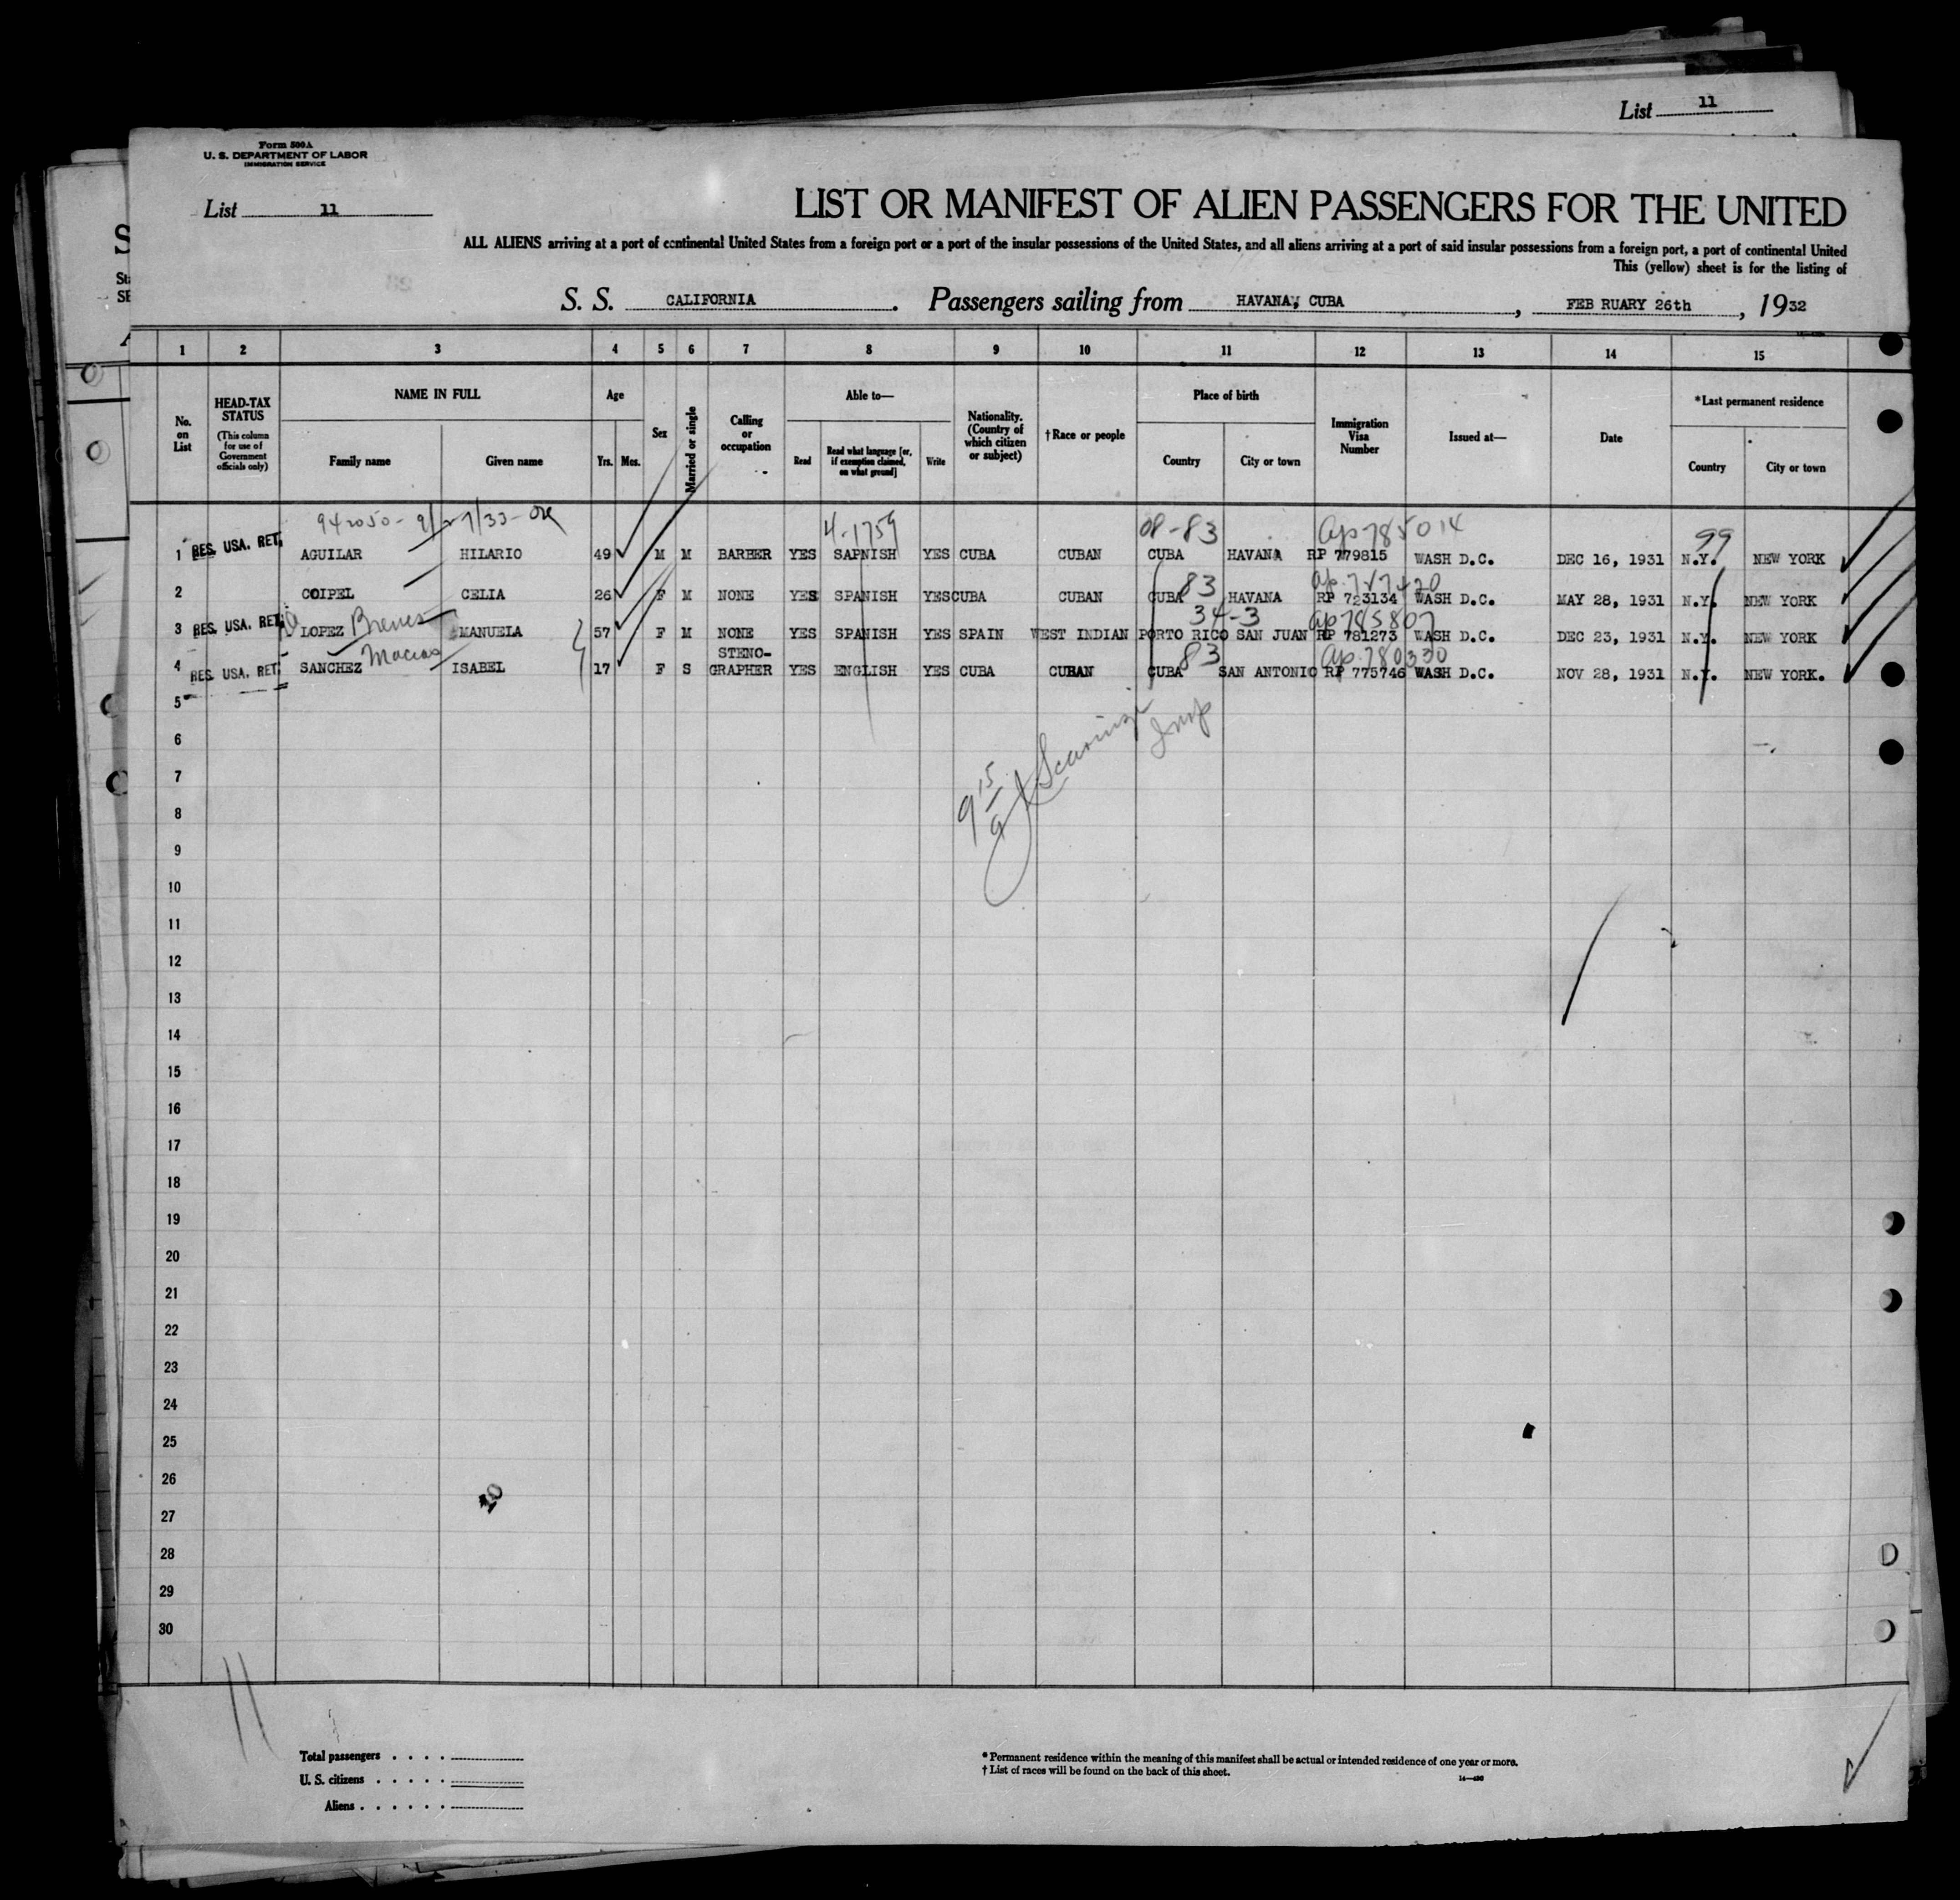 List 11
Form 500A
U. S. DEPARTMENT OF LABOR
IMMIGRATION SERVICE
List 11
LIST OR MANIFEST OF ALIEN PASSENGERS FOR THE UNITED
ALL ALIENS arriving at a port of continental United States from a foreign port or a port of the insular possessions of the United States, and all aliens arriving at a port of said insular possessions from a foreign port, a port of continental United
This (yellow) sheet is for the listing of
S. S. CALIFORNIA. Passengers sailing from HAVANA, CUBA, FEB RUARY 26th, 1932
1 2 3 4 5 6 7 8 9 10 11 12 13 14 15
No. on List
HEAD-TAX STATUS
(This column for use of Government officials only)
NAME IN FULL
Family name Given name
Age
Yrs. Mos.
Sex
Married or single
Calling or occupation
Able to—
Read
Read what language [or, if exemption claimed, on what ground]
Write
Nationality. (Country of which citizen or subject)
†Race or people
Place of birth
Country City or town
Immigration Visa Number
Issued at—
Date
*Last permanent residence
Country City or town
4-1759 08-83 99
1 RES. USA. RET. AGUILAR HILARIO 49 M M BARBER YES SAPNISH YES CUBA CUBAN CUBA HAVANA RP 779815 WASH D.C. DEC 16, 1931 N.Y. NEW YORK
83
2 COIPEL CELIA 26 F M NONE YES SPANISH YES CUBA CUBAN CUBA HAVANA RP 723134 WASH D.C. MAY 28, 1931 N.Y. NEW YORK
34-3 ap 785807
3 RES. USA. RET. LOPEZ MANUELA 57 F M NONE YES SPANISH YES SPAIN WEST INDIAN PORTO RICO SAN JUAN RP 781273 WASH D.C. DEC 23, 1931 N.Y. NEW YORK
Macias 83 ap. 780330
4 RES. USA. RET. SANCHEZ ISABEL 17 F S STENO-GRAPHER YES ENGLISH YES CUBA CUBAN CUBA SAN ANTONIO RP 775746 WASH D.C. NOV 28, 1931 N.Y. NEW YORK.
5
6
7
8
9
10
11
12
13
14
15
16
17
18
19
20
21
22
23
24
25
26
27
28
29
30
Total passengers
U. S. citizens
Aliens
* Permanent residence within the meaning of this manifest shall be actual or intended residence of one year or more.
† List of races will be found on the back of this sheet.